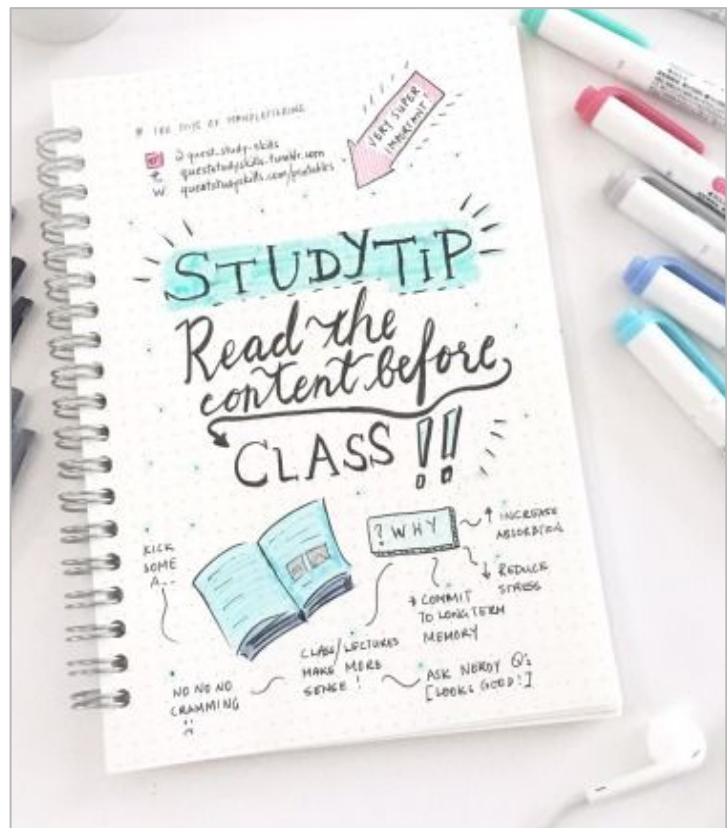 # 100 DAYS OF HANDLETTERING
@quest.study.skills
t queststudyskills.tumblr.com
W queststudyskills.com/printables
VERY SUPER
IMPORTANT!
STUDY TIP
Read the
content before
CLASS !!
KICK
SOME
A..
? WHY
↑ INCREASE
ABSORBTION
↓ REDUCE
STRESS
COMMIT
TO LONG TERM
MEMORY
CLASS/LECTURES
MAKE MORE
SENSE !
ASK NERDY Q's
[LOOKS GOOD!]
NO NO NO
CRAMMING
!!